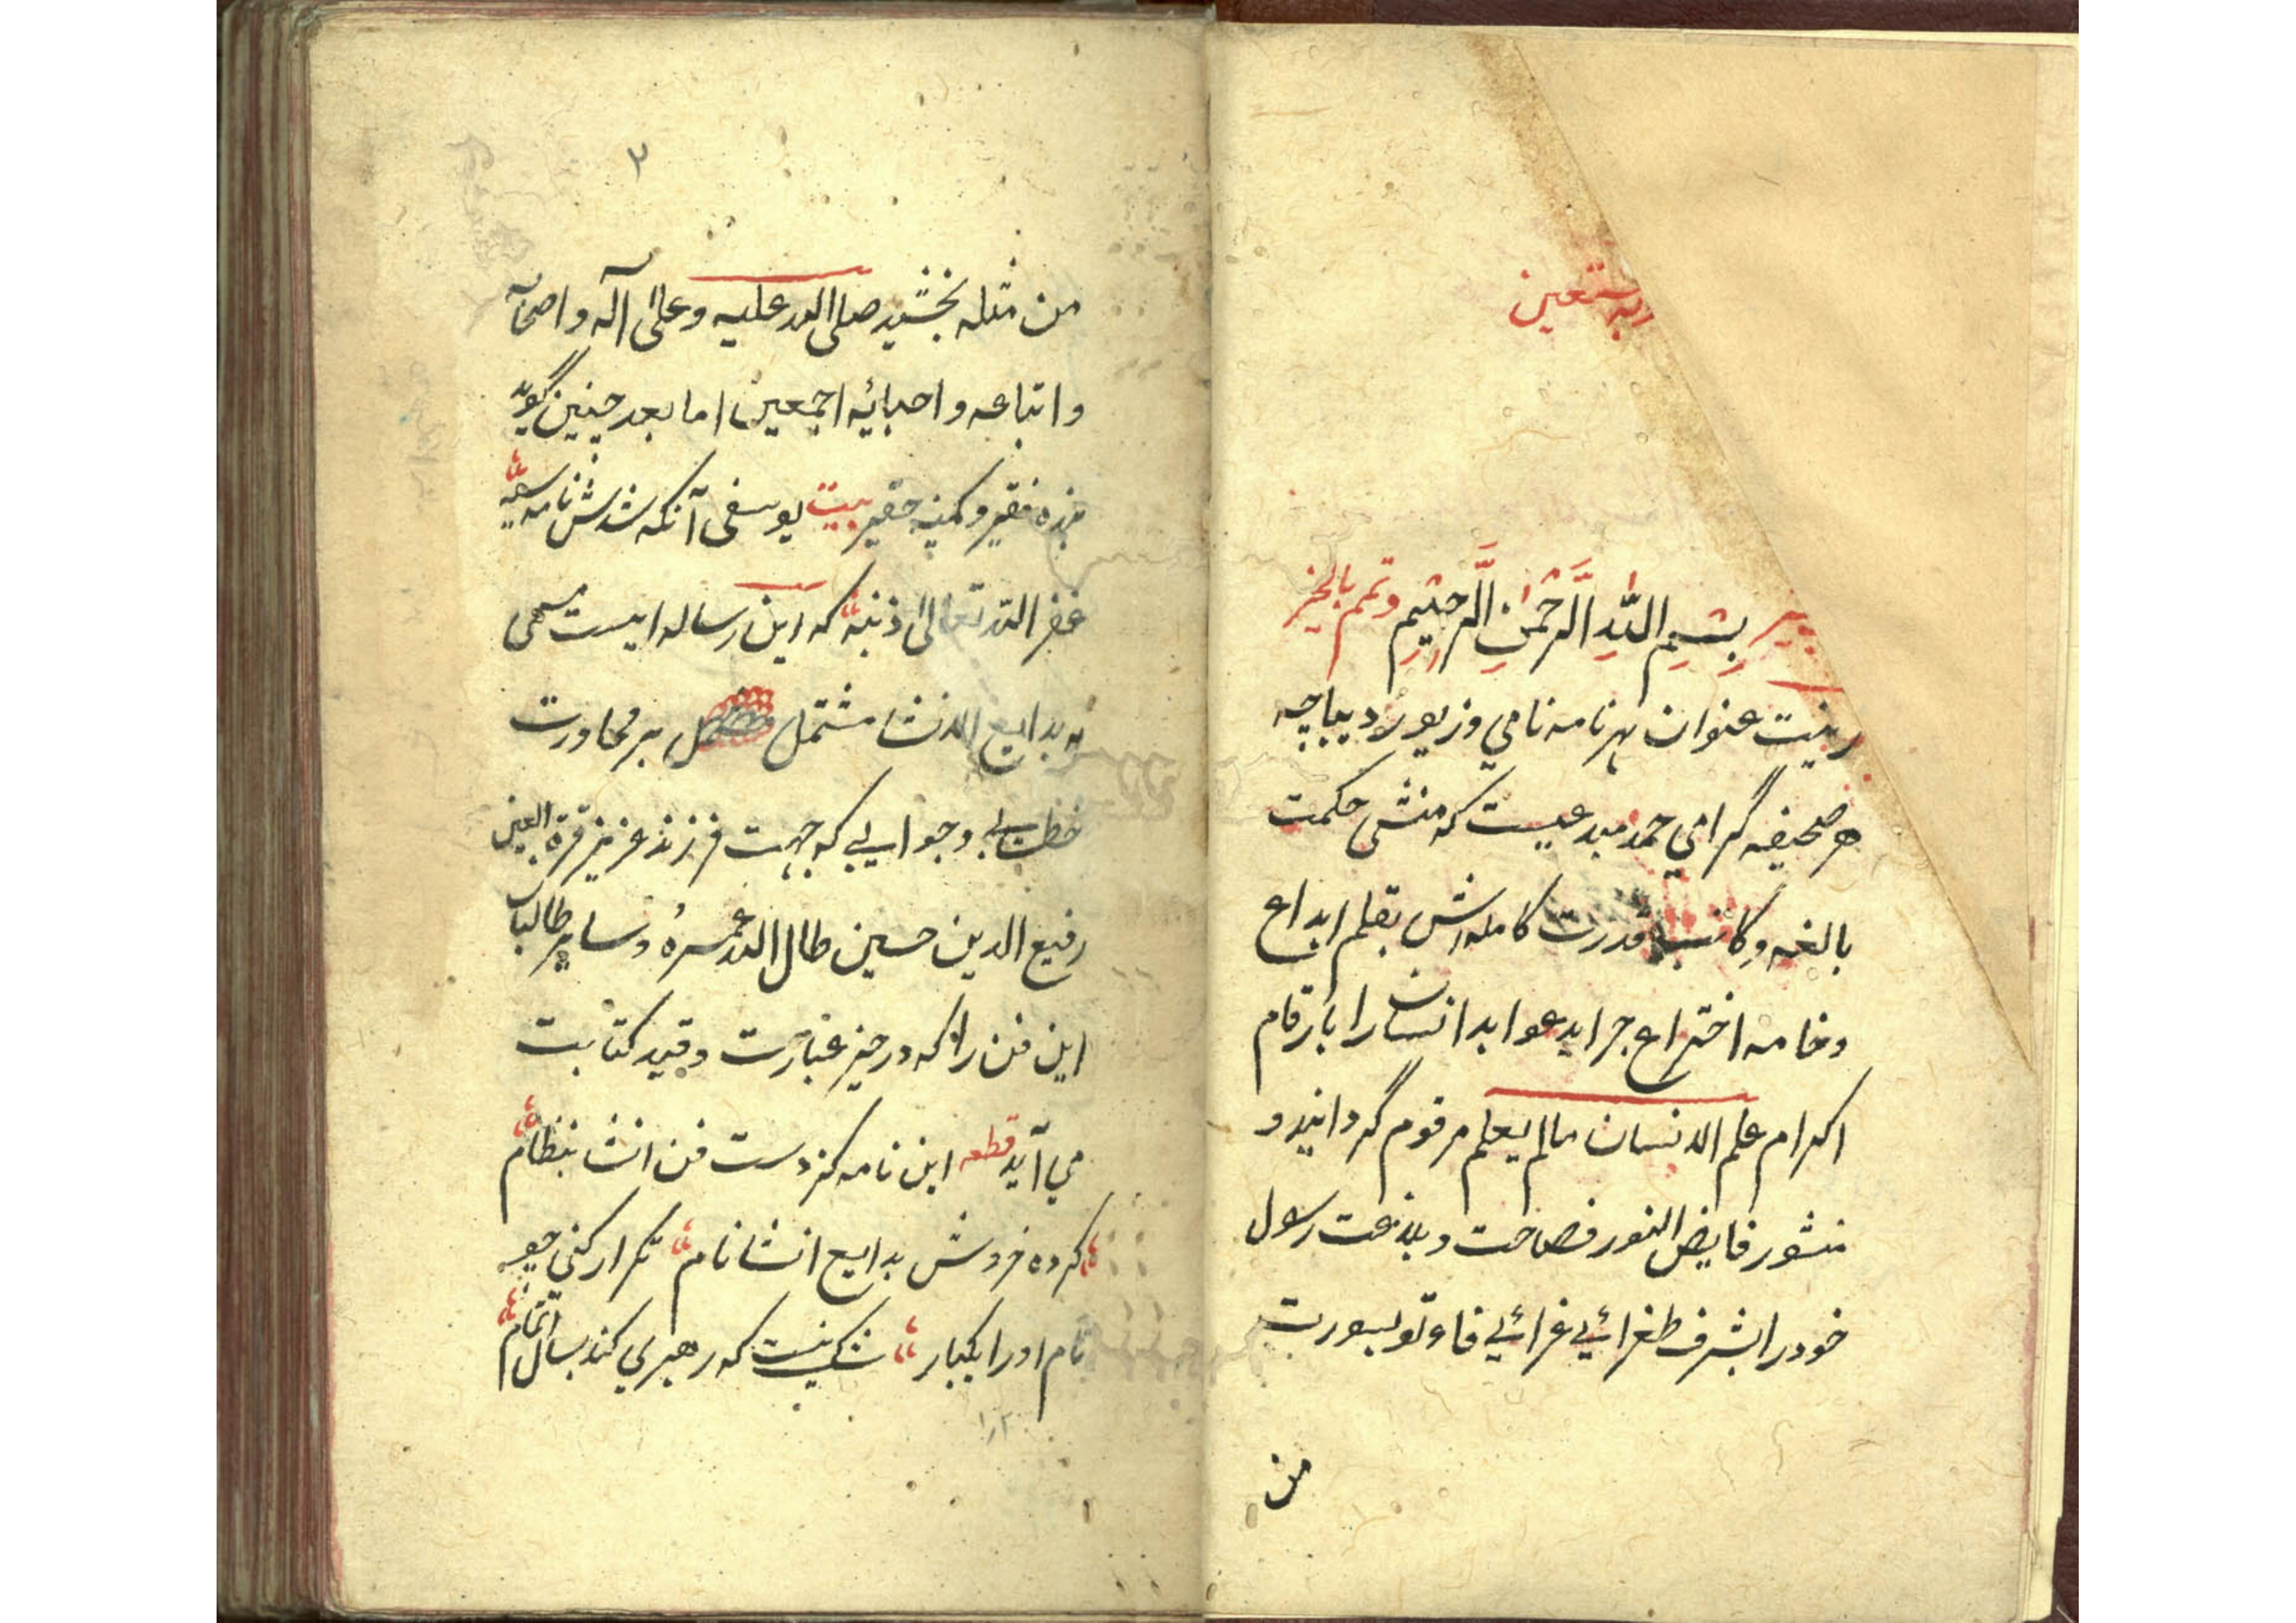 وبه نستعین
بِسْمِ اللّٰهِ الرَّحْمٰنِ الرَّحِیْمِ وتمم بالخیر
زینت عنوان هر نامه نامي وزیور دیباچه
هر صحیفه گرامي حمد مبدعیست که منشی حکمت
بالغه وکاتب قدرت کامله اش بقلم ابداع
وخامه اختراع جراید عواید انسان را بارقام
اکرام علم الانسان مالم یعلم مرقوم گردانید و
منشور فایض النور فصاحت وبلاغت رسول
خود را بشرف طغرائي غرائي فاءتو بسورت
من
۲
من مثله بخشید صلی الله علیه وعلیٰ آله واصحابه
واتباعه واحبائه اجمعین اما بعد چنین گوید
بنده فقیر وکمینه حقیر بیت یوسفی آنکه شدش نامه سیه
غفر الله تعالیٰ ذنبه که این رساله ایست مسمی
به بدایع الانشا مشتمل بر محاورت
خطابي وجوابي که جهت فرزند عزیز قرة العین
رفیع الدین حسین طال الله عمره وسایر طالبان
این فن را که در حیز عبارت وقید کتابت
مي آید قطعه این نامه کز دست فن انشا بنظام
کرده خردش بدایع انشا نام تکرار کني چو
نام او را یکبار شک نیست که رهبري کند بسال اتمام